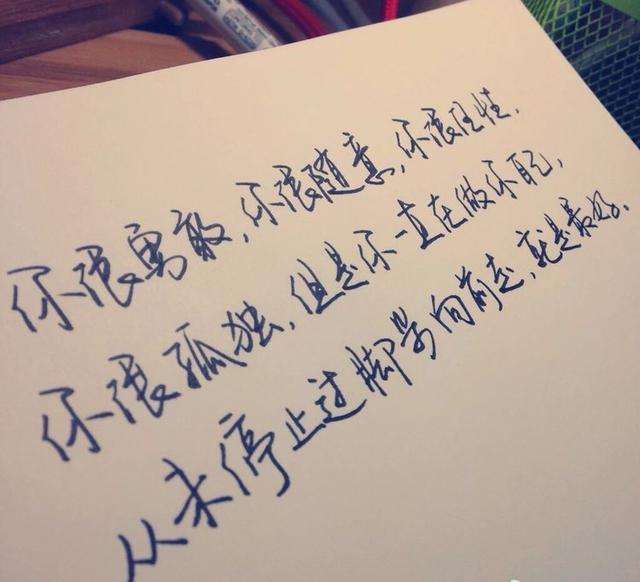 你很勇敢,你很随意,你很任性.
你很孤独,但是你一直在做你自己,
从未停止过脚步向前走,就是最好。